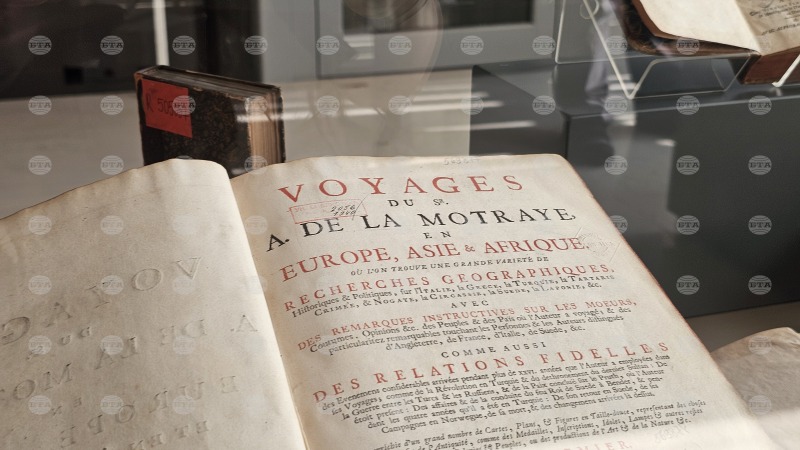 VOYAGES
DU Sr.
A. DE LA MOTRAYE,
EN
EUROPE, ASIE & AFRIQUE,
OÙ L'ON TROUVE UNE GRANDE VARIETÉ DE
RECHERCHES GEOGRAPHIQUES,
Historiques & Politiques, sur l'ITALIE, la GRECE, la TURQUIE, la TARTARIE
CRIMÉE, & NOGAYE, la CIRCASSIE, la SUEDE, la LAPONIE, &c.
AVEC
DES REMARQUES INSTRUCTIVES SUR LES MOEURS,
Coutumes, Opinions &c. des Peuples & des Païs où l'Auteur a voyagé, & des
particularitez remarquables touchant les Personnes & les Auteurs distingués
d'Angleterre, de France, d'Italie, de Suede, &c.
COMME AUSSI
DES RELATIONS FIDELLES
des Evenemens considerables arrivées pendant plus de XXVI. années que l'Auteur a employées dans
ses Voyages; comme de la Révolution en Turquie & du dethronement du dernier Sultan: De
la Guerre entre les Turcs & les Russiens, & de la Paix concluë sur le Pruth, où l'Auteur
étoit présent: Des affaires & de la conduite du feu Roi de Suede à Bender, & pen-
dant les quatre années qu'il a été en Turquie: De son retour en Suede, de ses
Campagnes en Norwegue, de sa mort, & des changemens arrivés là dessus.
enrichie d'un grand nombre de Cartes, Plans, & Figures en Taille-douce, representant des choses
de l'Antiquité, comme des Médailles, Inscriptions, Idoles, Lampes & autres restes
& Peuples, ou des productions de l'Art & de la Nature &c.
БТА